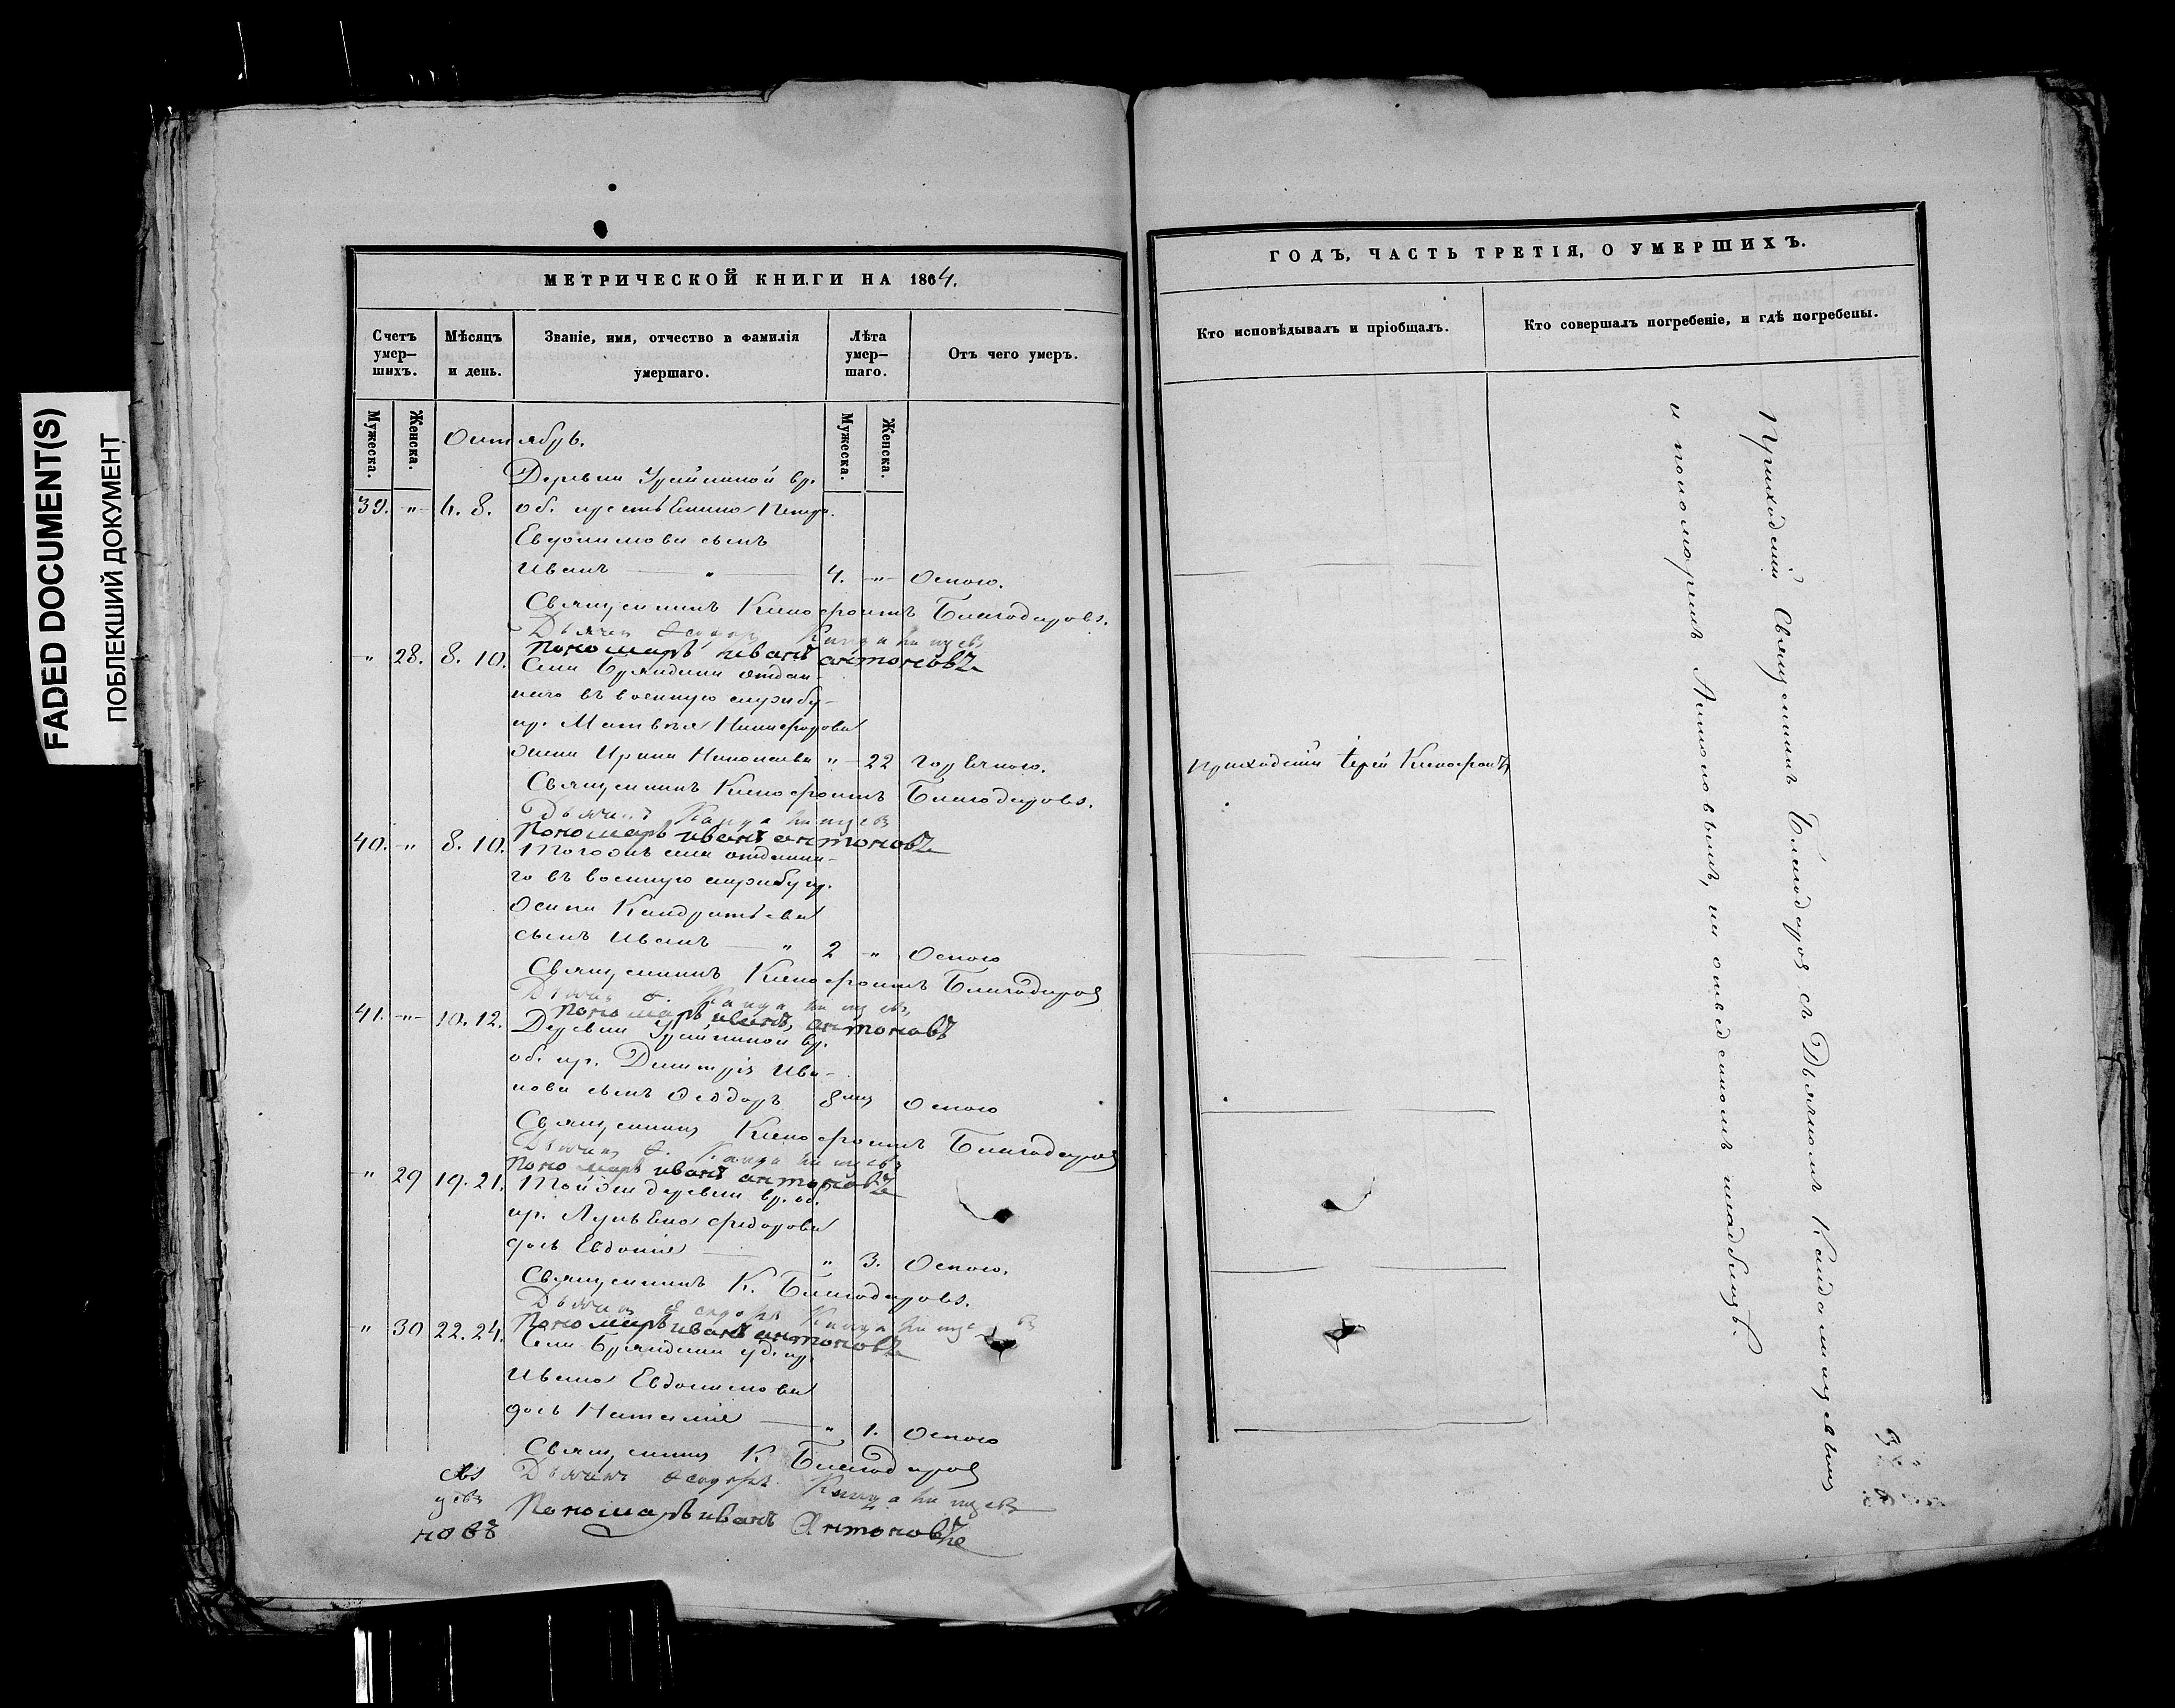 FADED DOCUMENT(S)
ПОБЛЕКШИЙ ДОКУМЕНТ
МЕТРИЧЕСКОЙ КНИГИ НА 1864.
Счетъ умер–шихъ.
Мѣсяцъ и день.
Званіе, имя, отчество и фамилія умершаго.
Лѣта умер–шаго.
Отъ чего умеръ.
Мужеска.
Женска.
Мужеска.
Женска.
Октябрь.
Деревни вр.
39. „ 6. 8. об. крестьянина Петра
Евдокимова сынъ
Иванъ „ 4. „ Оспою.
Священникъ Ксенофонтъ Благодаровъ.
Дьячекъ Ѳеодоръ
Пономарь иванъ антоновъ
„ 28. 8. 10. Села отдан–
наго въ военную службу
кр. Матвѣя Никифорова
жена Ирина Николаева „ 22 Горячкою.
Священникъ Ксенофонтъ Благодаровъ.
Дьячекъ
Пономарь иванъ антоновъ
40. „ 8. 10. Тогожъ села отданна–
го въ военную службу кр.
Осипа Кандратьева
сынъ Иванъ „ 2 „ Оспою
Священникъ Ксенофонтъ Благодаровъ
Дьячекъ Ѳ.
Пономарь иванъ антоновъ
41. „ 10. 12. Деревни вр.
об. кр. Димитрія Ива–
нова сынъ Ѳеодоръ 8 мц Оспою
Священникъ Ксенофонтъ Благодаровъ
Дьячекъ Ѳ.
Пономарь иванъ антоновъ
„ 29 19. 21. Той же деревни вр. об.
кр. Лукьяна Федорова
дочь Евдокія „ 3. Оспою.
Священникъ К. Благодаровъ.
Дьячекъ Ѳеодоръ
Пономарь иванъ антоновъ
„ 30 22. 24. Села уд. кр.
Ивана Евдокимова
дочь Наталія „ 1. Оспою
Священникъ К. Благодаровъ
Дьячекъ Ѳеодоръ
новъ Пономарь иванъ Антоновъ
ГОДЪ, ЧАСТЬ ТРЕТІЯ, О УМЕРШИХЪ.
Кто исповѣдывалъ и пріобщалъ.
Кто совершалъ погребеніе, и гдѣ погребены.
приходскій іерей Ксенофонтъ
Приходскій Священникъ Благодаровъ съ Дьячкомъ
и пономаремъ Антоновымъ, на отведенномъ кладбищѣ.